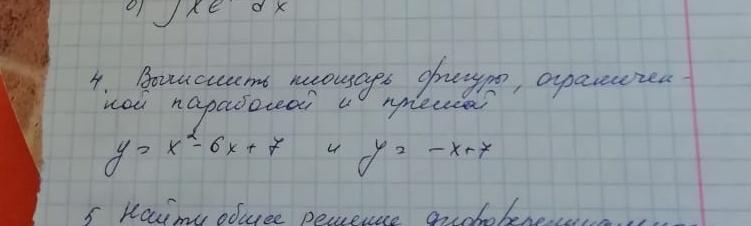 б) ∫ x e dx
4. Вычислить площадь фигуры, ограничен-
ной параболой и прямой
y = x² - 6x + 7 и y = -x+7
5 Найти общее решение